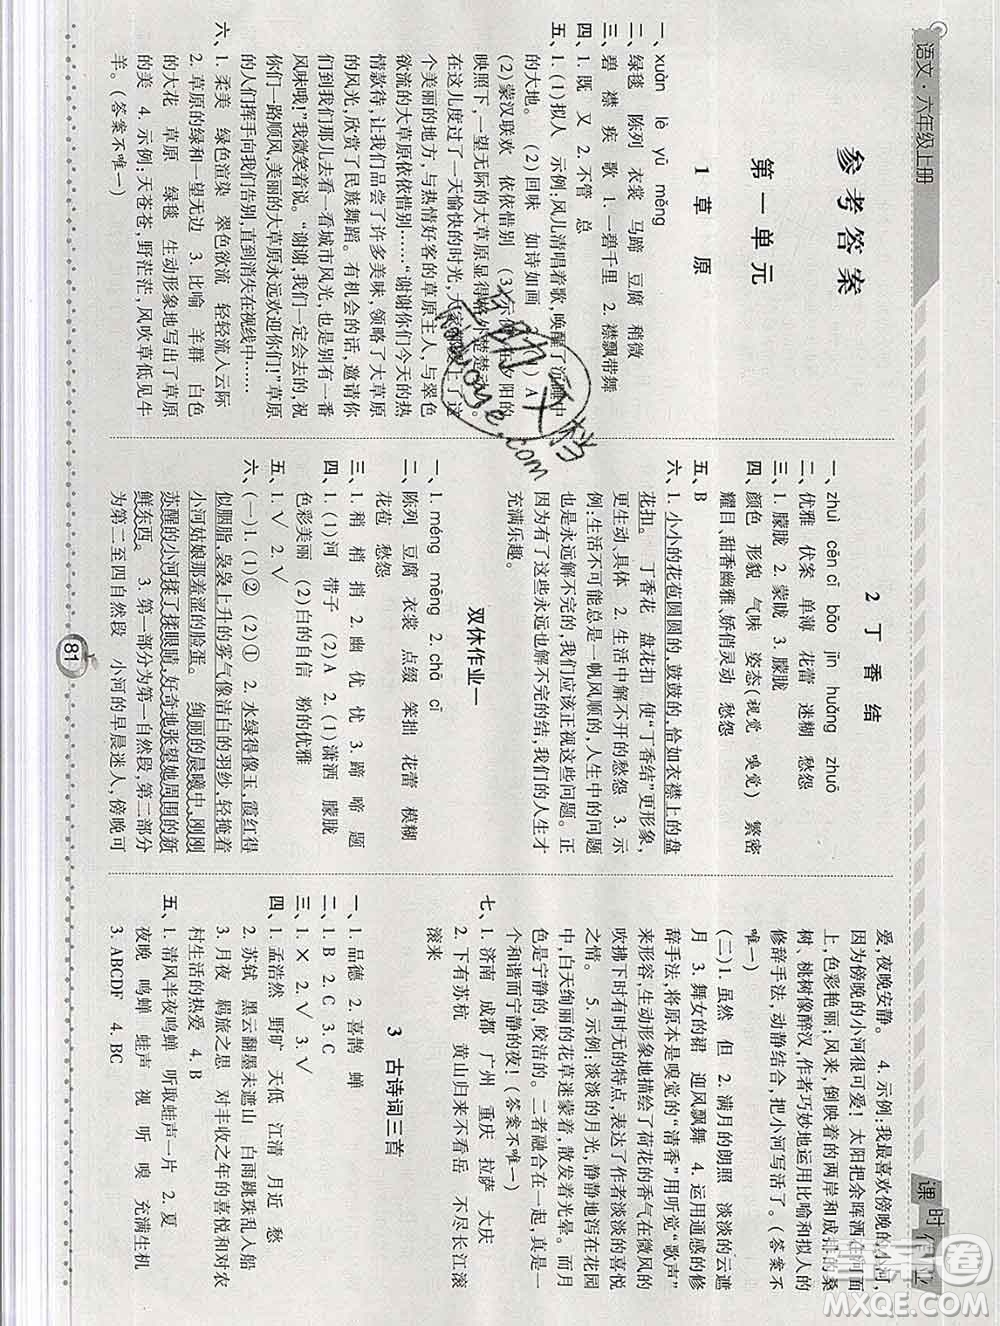 语文·六年级上册
课时作业
参考答案
第一单元
1 草原
一、xuàn lè yū měng
二、绿毯 陈列 衣裳 马蹄 豆腐 稍微
三、碧 襟 疾 歌 1.一碧千里 2.襟飘带舞
四、1.既 又 2.不管 总
五、1.(1)拟人 示例:风儿清唱着歌,唤醒了沉睡中
的大地。 (2)回味 如诗如画 (2)A
(2)蒙汉联欢 依依惜别 (3)示例:夕阳的
映照下,一望无际的大草原显得格外楚楚动人。
在这儿度过了一天愉快的时光,大家都爱上了这
个美丽的地方,与热情好客的草原主人,与翠色
欲流的大草原依依惜别……“谢谢你们今天的热
情款待,让我们品尝了许多美味,领略了大草原
的风光,欣赏了民族舞蹈。有机会的话,邀请你
们到我们那儿去看看城市风光,也是别有一番
风味哦!”我微笑着说。“谢谢,我们一定会去的,祝
你们一路顺风,美丽的大草原永远欢迎你们!”草原
的人们挥手向我们告别,直到消失在视线中……
六、1.柔美 绿色渲染 翠色欲流 轻轻流入云际
2.草原的绿和一望无边 3.比喻 羊群 白色
的大花 草原 绿毯 生动形象地写出了草原
的美 4.示例:天苍苍,野茫茫,风吹草低见牛
羊。(答案不唯一)
2 丁香结
一、zhuì cēn cī bāo jīn huǎng zhuō
二、优雅 伏案 单薄 花蕾 迷糊 愁怨
三、1.朦胧 2.蒙眬 3.朦胧
四、颜色 形貌 气味 姿态(视觉 嗅觉) 繁密
耀目、甜香幽雅、娇俏灵动 愁怨
五、B
六、1.小小的花苞圆圆的,鼓鼓的,恰如衣襟上的盘
花扣。 丁香花 盘花扣 使“丁香结”更形象,
更生动、具体 2.生活中解不开的愁怨 3.示
例:生活不可能总是一帆风顺的,人生中的问题
也是永远解不完的,我们应该正视这些问题。正
因为有了这些永远也解不完的结,我们的人生才
充满乐趣。
双休作业一
一、1.méng mēng 2.chā cī
二、陈列 豆腐 衣裳 点缀 笨拙 花蕾 模糊
花苞 愁怨
三、1.稍 梢 捎 2.幽 优 忧 3.蹄 啼 题
四、1.(1)河 带子 (2)A 2.(1)潇洒 朦胧
色彩美丽 (2)白的自信 粉的优雅
五、1.√ 2.√
六、(一)1.(1)② (2)① 2.水绿得像玉,霞红得
似胭脂,袅袅上升的雾气像洁白的羽纱,轻掩着
小河姑娘那羞涩的脸蛋。 绚丽的晨曦中,刚刚
苏醒的小河揉了揉眼睛,好奇地张望她周围的新
鲜东西。 3.第一部分为第一自然段,第二部分
为第二至四自然段 小河的早晨迷人,傍晚可
爱,夜晚安静。 4.示例:我最喜欢傍晚的小河,
因为傍晚的小河很可爱!太阳把余晖洒在河面
上,色彩艳丽;风来,倒映着的两岸和成排的桑
树、桃树像醉汉,作者巧妙地运用比喻和拟人的
修辞手法,动静结合,把小河写活了。(答案不
唯一)
(二)1.虽然 但 2.满月的朗照 淡淡的云遮
月 3.舞女的裙 迎风飘舞 4.运用通感的修
辞手法,将原本是嗅觉的“清香”用听觉“歌声”
来形容,生动形象地描绘了荷花的香气在微风的
吹拂下时有时无的特点,表达了作者淡淡的喜悦
之情。 5.示例:淡淡的月光,静静地泻在花园
中,白天绚丽的花草迷蒙着,散发着光晕。月
色是宁静的,皎洁的。二者融合在一起,真是一
个和谐而宁静的夜!(答案不唯一)
七、1.济南 成都 广州 重庆 拉萨 大庆
2.下有苏杭 黄山归来不看岳 不尽长江滚
滚来
3 古诗词三首
一、1.品德 2.喜鹊 蝉
二、1.B 2.C 3.C
三、1.× 2.√ 3.√
四、1.孟浩然 野旷 天低 江清 月近 愁
2.苏轼 黑云翻墨未遮山 白雨跳珠乱入船
3.月夜 羁旅之思 对丰收之年的喜悦和对农
村生活的热爱 4.B
五、1.清风半夜鸣蝉 听取蛙声一片 2.夏
夜晚 鸣蝉 蛙声 视 听 嗅 充满生机
3.ABCDF 4.BC
81
答案圈
MXQE.COM